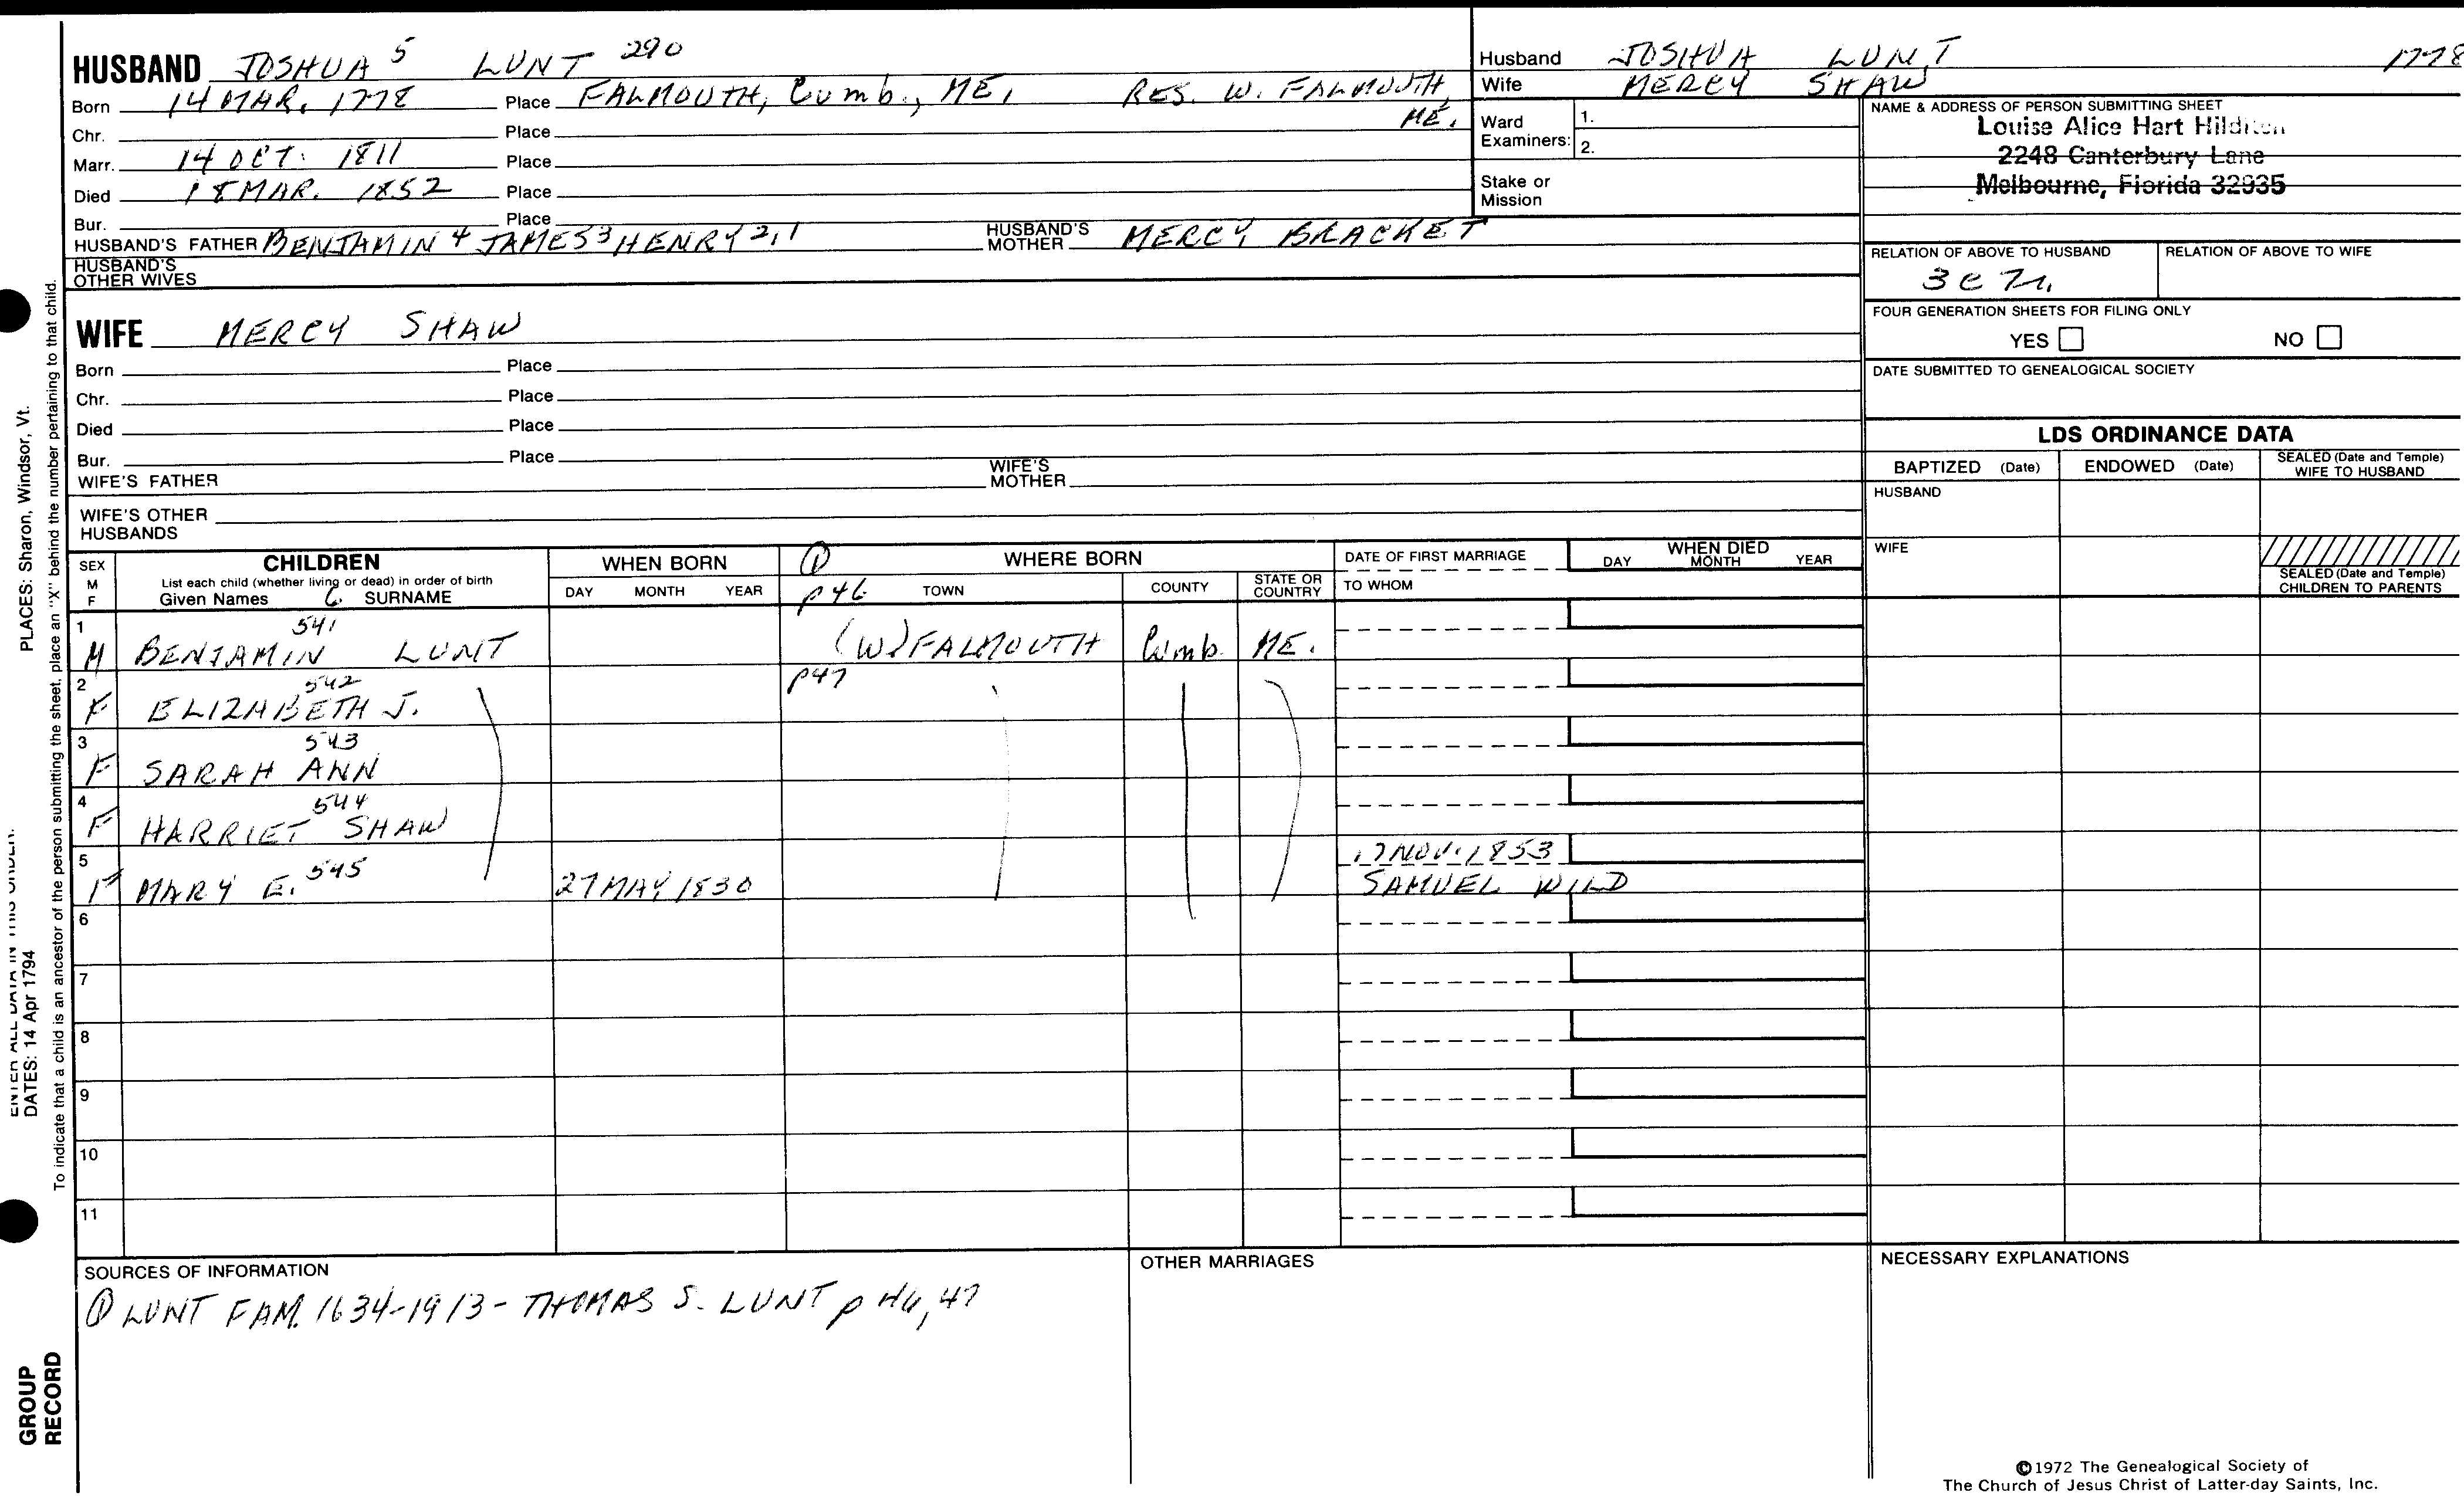 HUSBAND JOSHUA 5 LUNT 290
Born 14 MAR. 1778 Place FALMOUTH, Cumb., ME, RES. W. FALMOUTH, ME.
Chr. Place
Marr. 14 OCT. 1811 Place
Died 18 MAR. 1852 Place
Bur. Place
HUSBAND'S FATHER BENJAMIN 4 JAMES 3 HENRY 2,1 HUSBAND'S MOTHER MERCY BRACKET
HUSBAND'S OTHER WIVES
WIFE MERCY SHAW
Born Place
Chr. Place
Died Place
Bur. Place
WIFE'S FATHER WIFE'S MOTHER
WIFE'S OTHER HUSBANDS
Husband JOSHUA LUNT 1778
Wife MERCY SHAW
Ward Examiners: 1.
2.
Stake or Mission
NAME & ADDRESS OF PERSON SUBMITTING SHEET
Louise Alice Hart
2248 Canterbury Lane
Melbourne, Florida 32935
RELATION OF ABOVE TO HUSBAND RELATION OF ABOVE TO WIFE
FOUR GENERATION SHEETS FOR FILING ONLY
YES NO
DATE SUBMITTED TO GENEALOGICAL SOCIETY
LDS ORDINANCE DATA
BAPTIZED (Date) ENDOWED (Date) SEALED (Date and Temple) WIFE TO HUSBAND
HUSBAND
WIFE
SEALED (Date and Temple) CHILDREN TO PARENTS
SEX M F
CHILDREN
List each child (whether living or dead) in order of birth
Given Names 6. SURNAME
WHEN BORN
DAY MONTH YEAR
① WHERE BORN
p46 TOWN COUNTY STATE OR COUNTRY
DATE OF FIRST MARRIAGE
TO WHOM
WHEN DIED
DAY MONTH YEAR
1 541
M BENJAMIN LUNT (W) FALMOUTH Cumb. ME.
2 542 p47
F ELIZABETH J.
3 543
F SARAH ANN
4 544
F HARRIET SHAW
5 545 17 NOV. 1853
F MARY E. 27 MAY 1830 SAMUEL WILD
6
7
8
9
10
11
SOURCES OF INFORMATION
① LUNT FAM. 1634-1913 - THOMAS S. LUNT p 46, 47
OTHER MARRIAGES
NECESSARY EXPLANATIONS
©1972 The Genealogical Society of
The Church of Jesus Christ of Latter-day Saints, Inc.
PLACES: Sharon, Windsor, Vt.
DATES: 14 Apr 1794
To indicate that a child is an ancestor of the person submitting the sheet, place an "X" behind the number pertaining to that child.
GROUP
RECORD